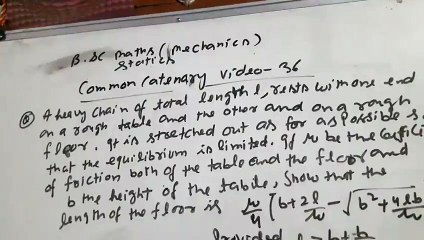 B.SC maths (mechanics)
statics
Common Catenary Video-36
A heavy chain of total length l, rests with one end
on a rough table and the other and on a rough
floor. It is stretched out as for as possible s.
that the equilibrium is limited. If μ be the
of friction both of the table and the floor and
b the height of the table, show that the
length of the floor is μ/4 [b+2l/μ - √b²+4lb/μ
Provided